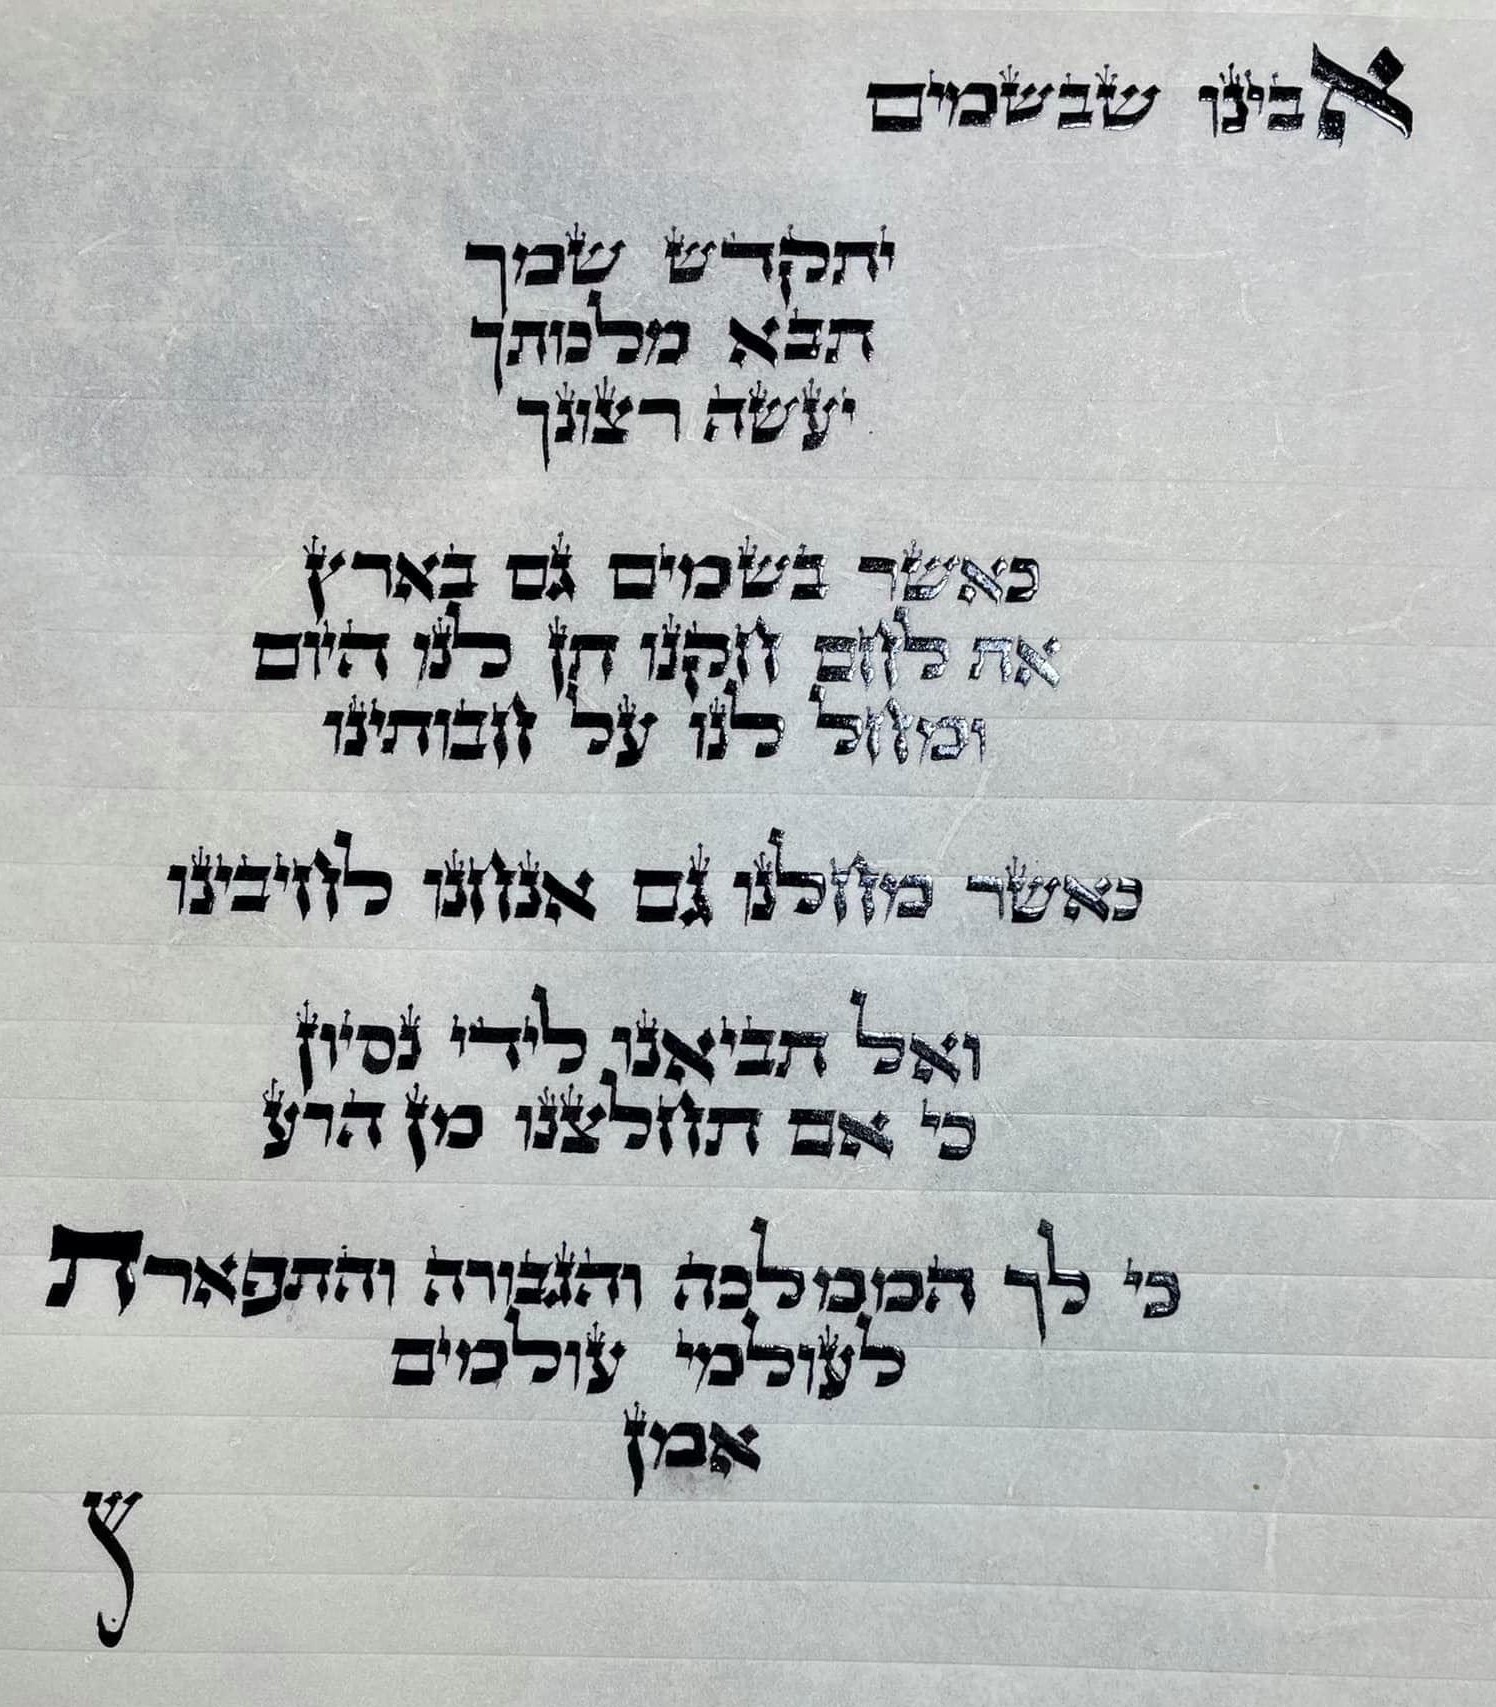 אבינו שבשמים
יתקדש שמך
תבא מלכותך
יעשה רצונך
כאשר בשמים גם בארץ
את לחם חקנו תן לנו היום
ומחל לנו על חבותינו
כאשר מחלנו גם אנחנו לחיבינו
ואל תביאנו לידי נסיון
כי אם תחלצנו מן הרע
כי לך הממלכה והגבורה והתפארת
לעולמי עולמים
אמן
ץ